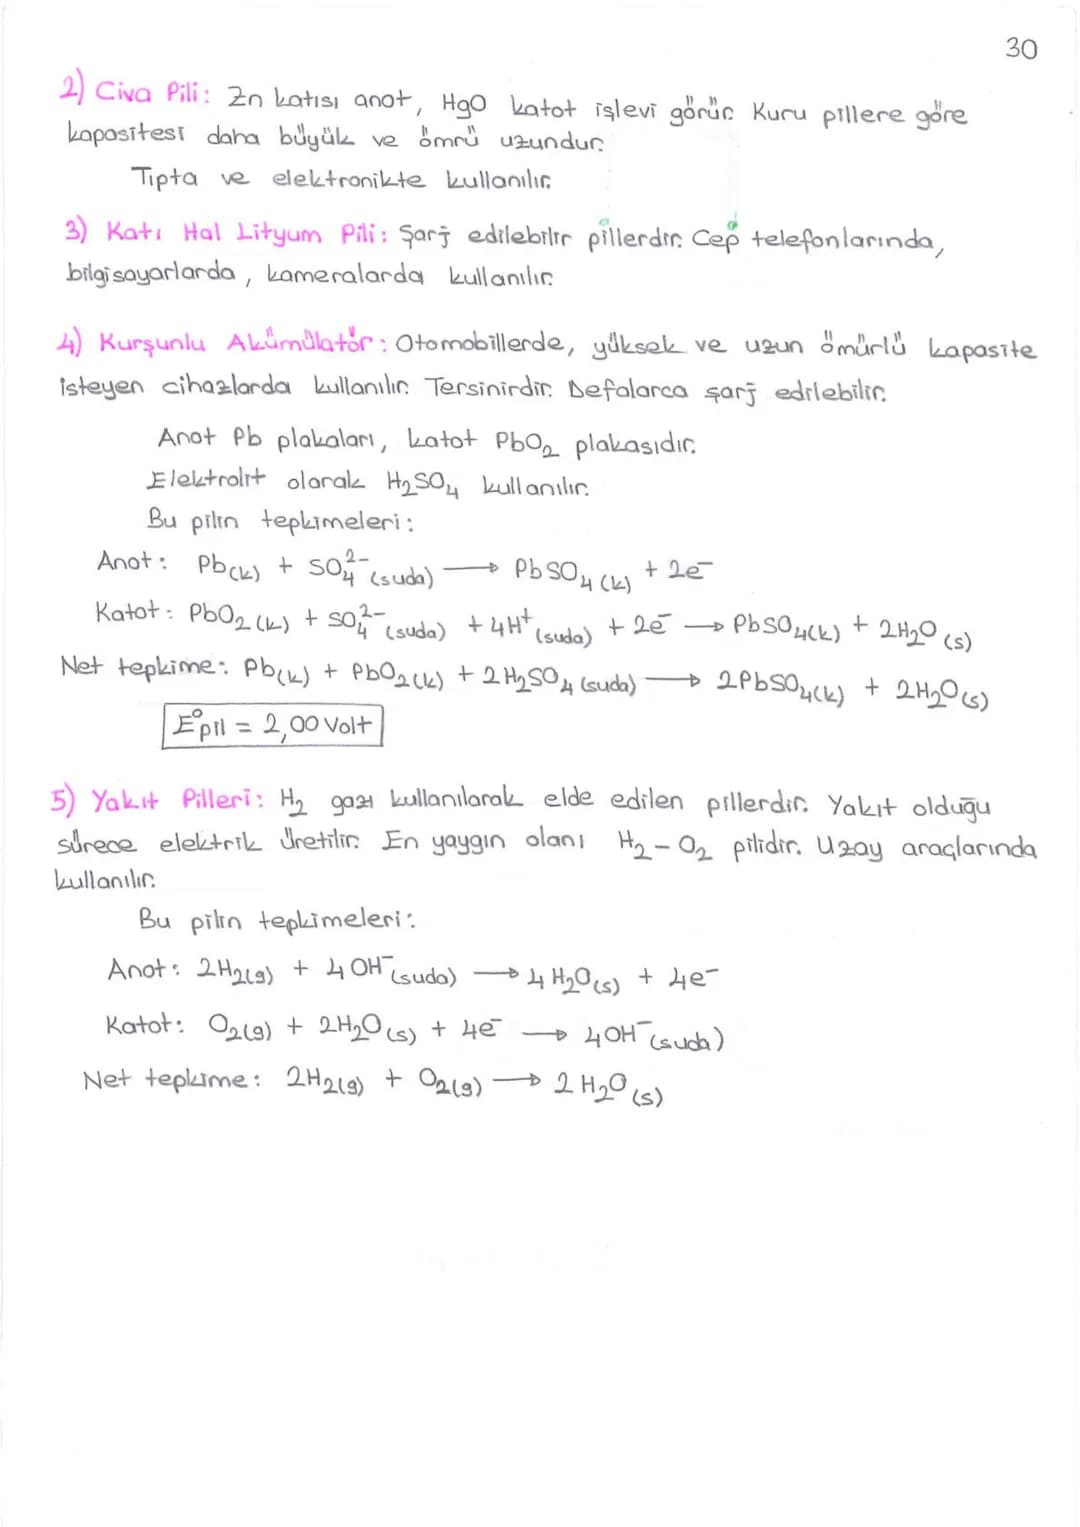 30
2) Civa Pili: Zn katısı anot, HgO katot işlevi görür. Kuru pillere göre
kapasitesi daha büyük ve ömrü uzundur.
Tıpta ve elektronikte kullanılır.
3) Katı Hal Lityum Pili: Şarj edilebilir pillerdir. Cep telefonlarında,
bilgisayarlarda, kameralarda kullanılır.
4) Kurşunlu Akümülatör: Otomobillerde, yüksek ve uzun ömürlü kapasite
isteyen cihazlarda kullanılır. Tersinirdir. Defalarca şarj edilebilir.
Anot Pb plakaları, katot PbO₂ plakasıdır.
Elektrolit olarak H₂SO₄ kullanılır.
Bu pilin tepkimeleri:
Anot: Pb(k) + SO₄²⁻(suda) → PbSO₄(k) + 2e⁻
Katot: PbO₂(k) + SO₄²⁻(suda) + 4H⁺(suda) + 2e⁻ → PbSO₄(k) + 2H₂O(s)
Net tepkime: Pb(k) + PbO₂(k) + 2H₂SO₄(suda) → 2PbSO₄(k) + 2H₂O(s)
E°pil = 2,00 Volt
5) Yakıt Pilleri: H₂ gazı kullanılarak elde edilen pillerdir. Yakıt olduğu
sürece elektrik üretilir. En yaygın olanı H₂-O₂ pilidir. Uzay araçlarında
kullanılır.
Bu pilin tepkimeleri:
Anot: 2H₂(g) + 4OH⁻(suda) → 4H₂O(s) + 4e⁻
Katot: O₂(g) + 2H₂O(s) + 4e⁻ → 4OH⁻(suda)
Net tepkime: 2H₂(g) + O₂(g) → 2H₂O(s)